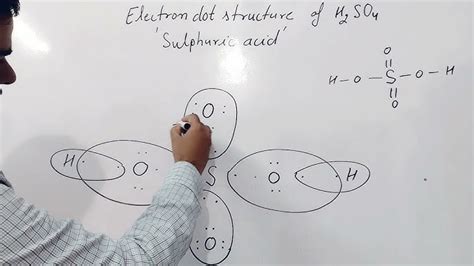 Electron dot structure of H₂SO₄
'Sulphuric acid'
O
H – O – S – O – H
O
O
H O S O H
O